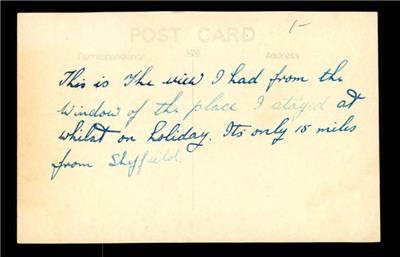 1-
POST CARD
Correspondence Address
This is The view I had from the
Window of the place I stayed at
whilst on holiday. Its only 15 miles
from Sheffield.